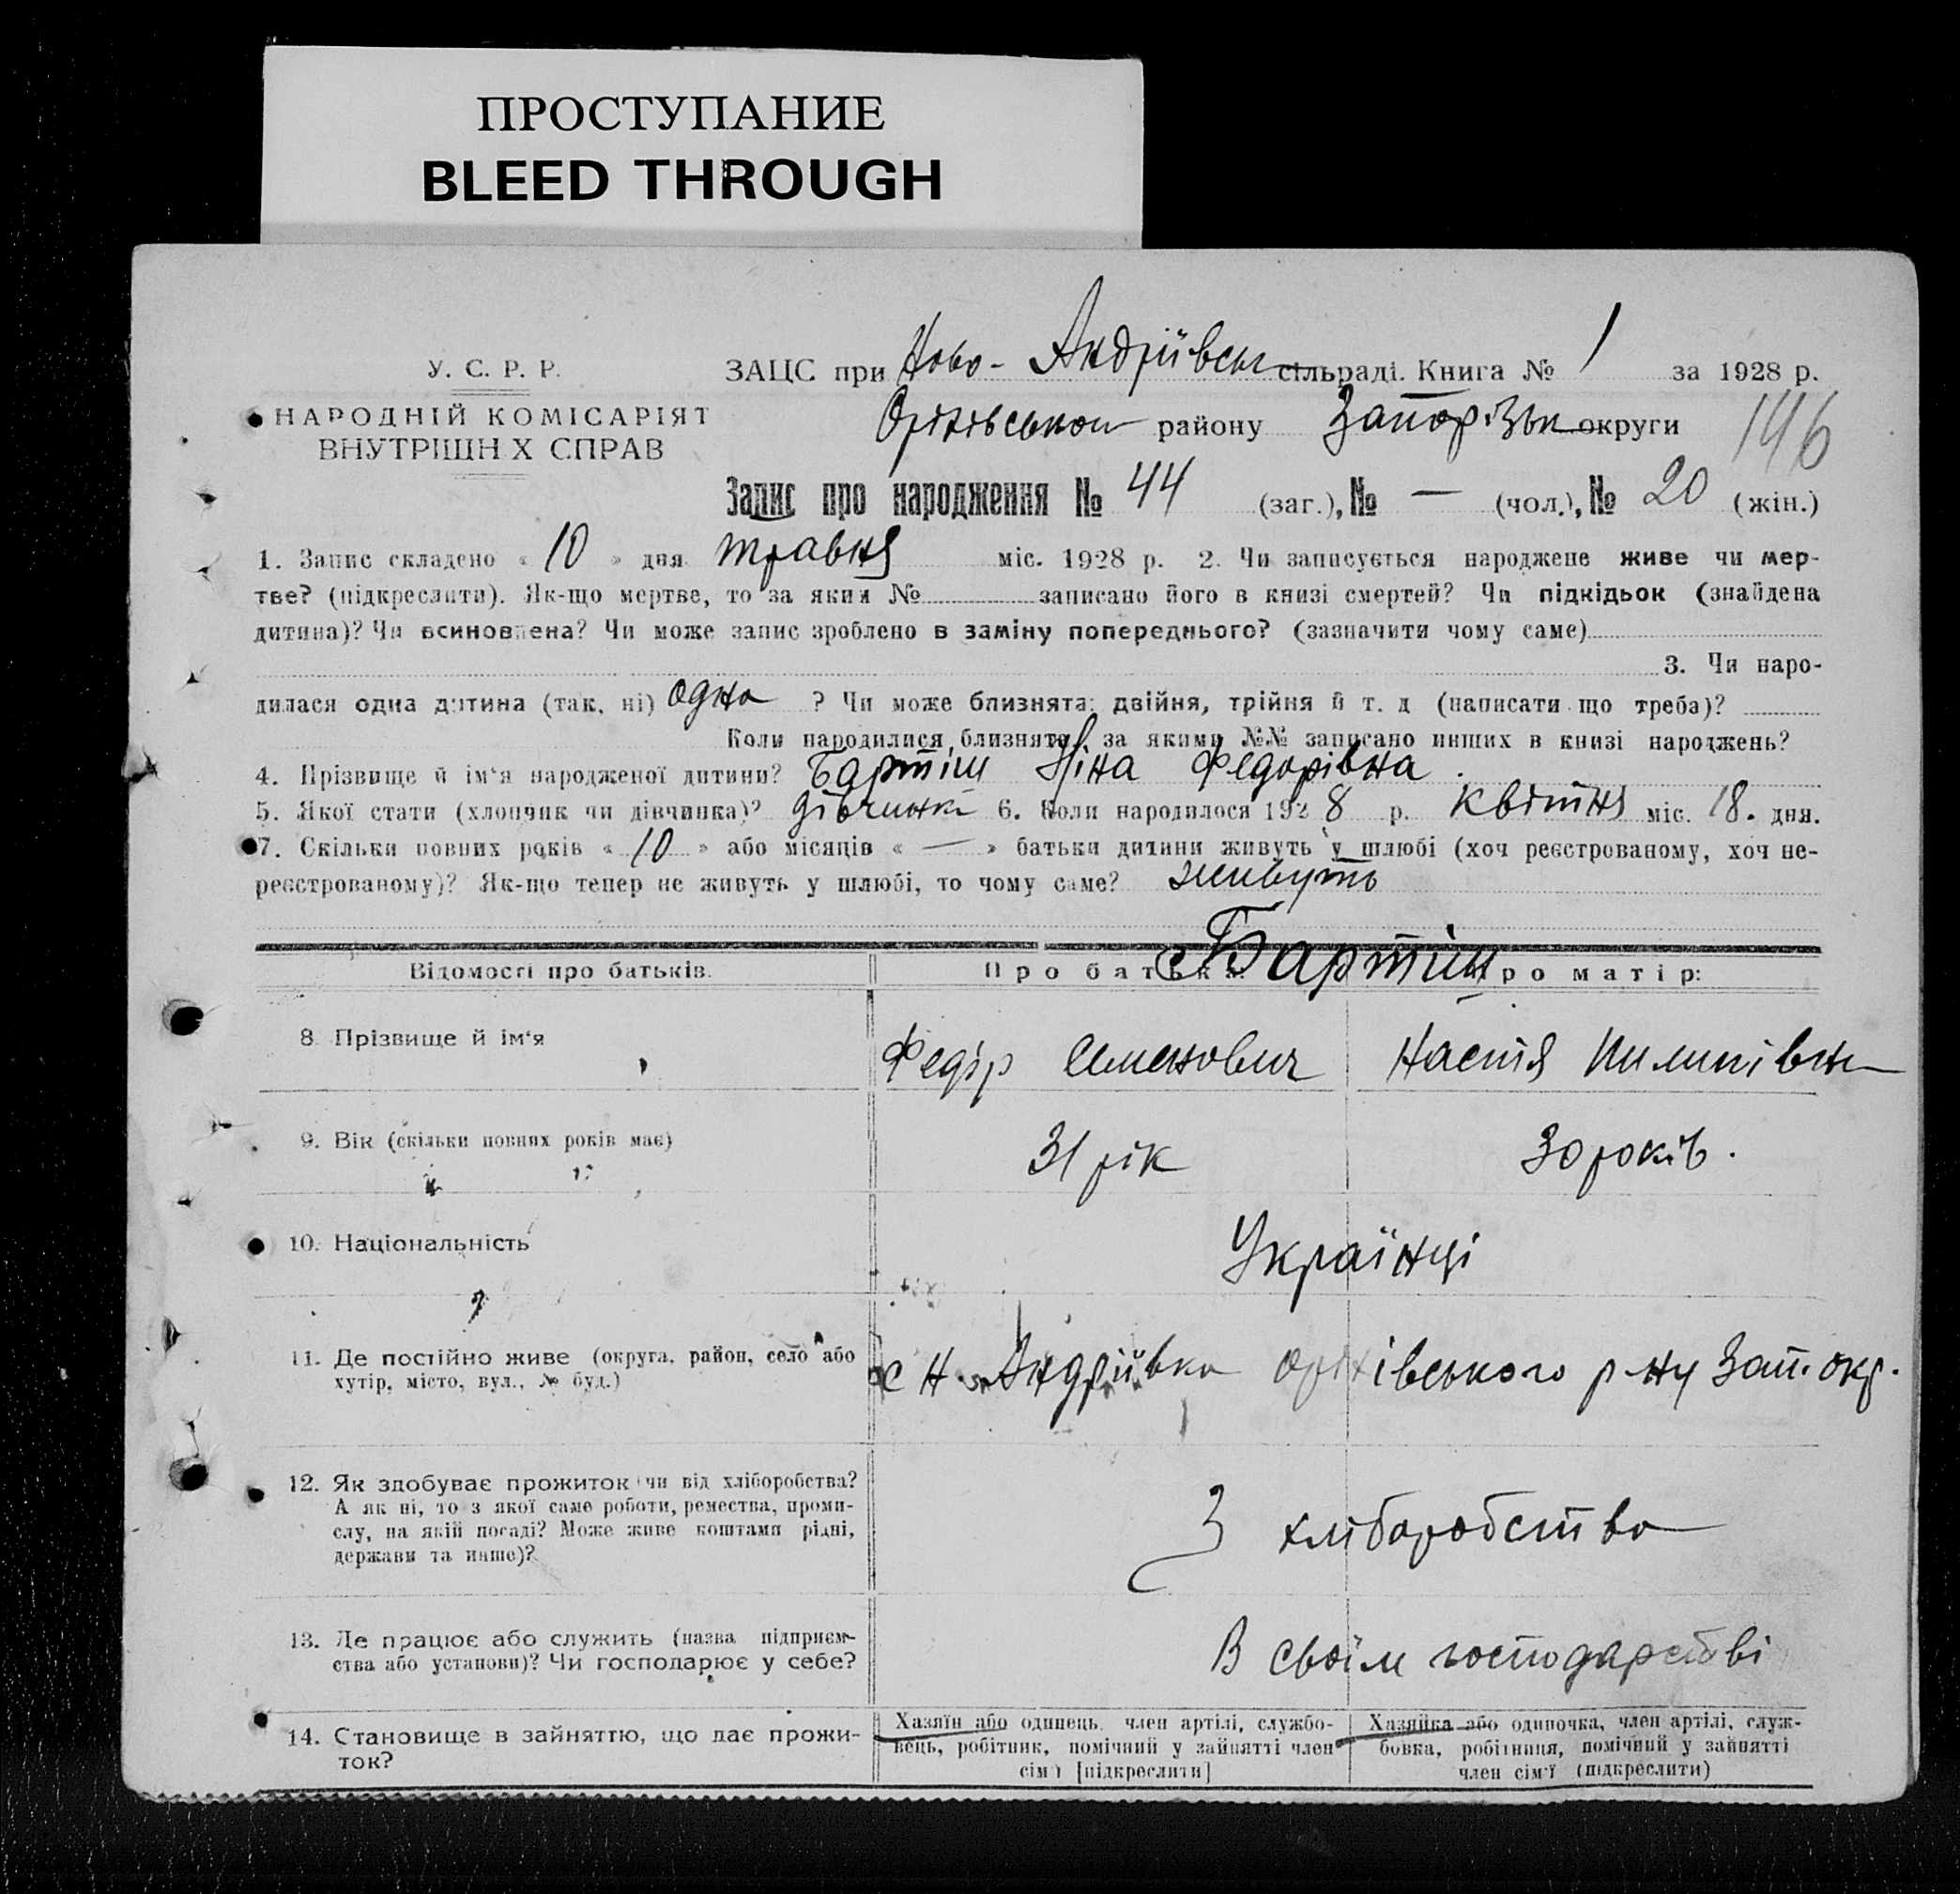 ПРОСТУПАНИЕ
BLEED THROUGH
У. С. Р. Р.
НАРОДНІЙ КОМІСАРІЯТ
ВНУТРІШН Х СПРАВ
ЗАЦС при Ново-Андріївськ сільраді. Книга № 1 за 1928 р.
Оріхівського району Запорізьк округи 146
Запис про народження № 44 (заг.), № — (чол.), № 20 (жін.)
1. Запис складено « 10 » дня травня міс. 1928 р. 2. Чи записується народжене живе чи мер-
тве? (підкреслити). Як-що мертве, то за яким № записано його в книзі смертей? Чи підкідьок (знайдена
дитина)? Чи всиновлена? Чи може запис зроблено в заміну попереднього? (зазначити чому саме)
3. Чи наро-
дилася одна дитина (так, ні) одна ? Чи може близнята: двійня, трійня й т. д (написати що треба)?
Коли народилися близнята, за якими №№ записано инших в книзі народжень?
4. Прізвище й ім'я народженої дитини? Бартіш Ніна Федорівна.
5. Якої стати (хлопчик чи дівчинка)? дівчинка 6. Коли народилося 1928 р. квітня міс. 18. дня.
7. Скільки повних років « 10 » або місяців « — » батьки дитини живуть у шлюбі (хоч реєстрованому, хоч не-
реєстрованому)? Як-що тепер не живуть у шлюбі, то чому саме? живуть
Відомості про батьків. Про батька: Бартіш Про матір:
8. Прізвище й ім'я Федір Семенович Настя Пилипівна
9. Вік (скільки повних років має) 31 рік 30 років.
10. Національність Українці
11. Де постійно живе (округа, район, село або
хутір, місто, вул., № буд.) с Н. Андріївка Оріхівського р-ну Зап. окр.
12. Як здобуває прожиток чи від хліборобства?
А як ні, то з якої саме роботи, ремества, проми-
слу, на якій посаді? Може живе коштами рідні,
держави та инше)?
З хліборобства
13. Де працює або служить (назва підприєм-
ства або установи)? Чи господарює у себе?
В своїм господарстві
14. Становище в зайняттю, що дає прожи-
ток?
Хазяїн або одинець, член артілі, службо-
вець, робітник, помічний у зайнятті член
сім'ї [підкреслити]
Хазяйка або одиночка, член артілі, служ-
бовка, робітниця, помічний у зайнятті
член сім'ї (підкреслити)